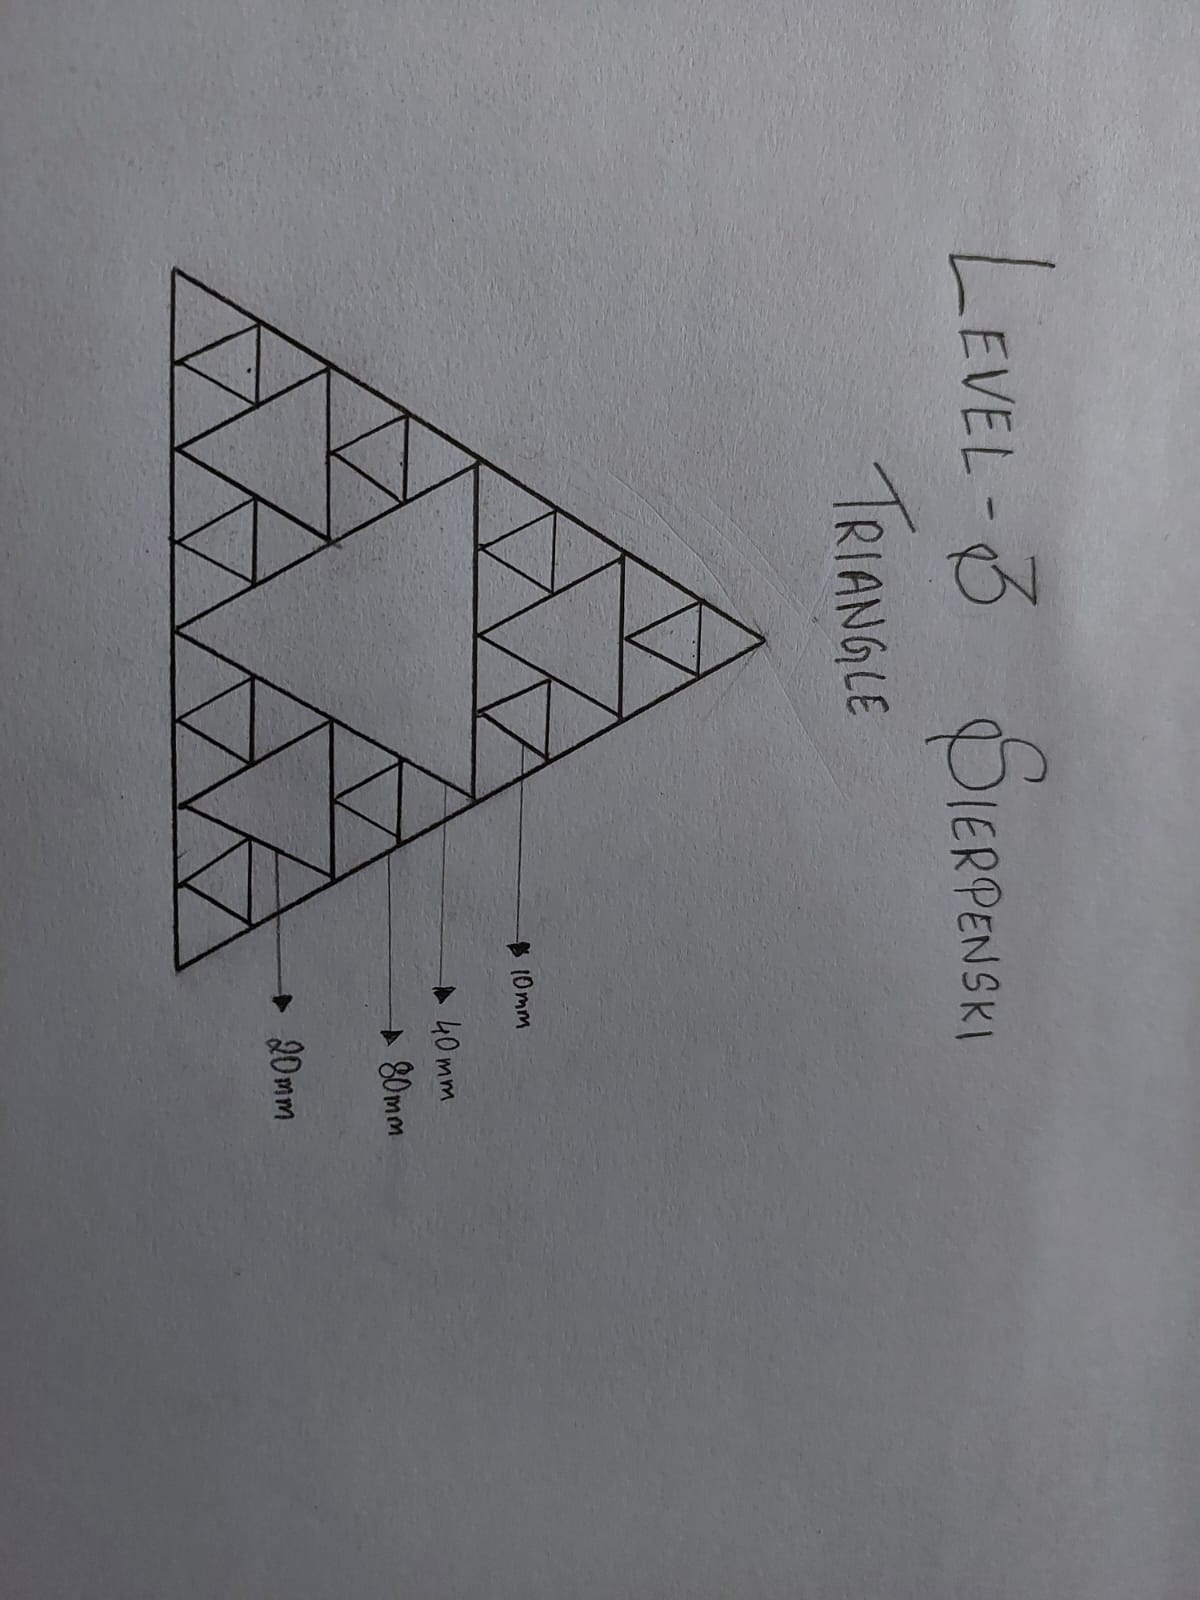 LEVEL-3 SIERPENSKI
TRIANGLE
10mm
40mm
80mm
20mm